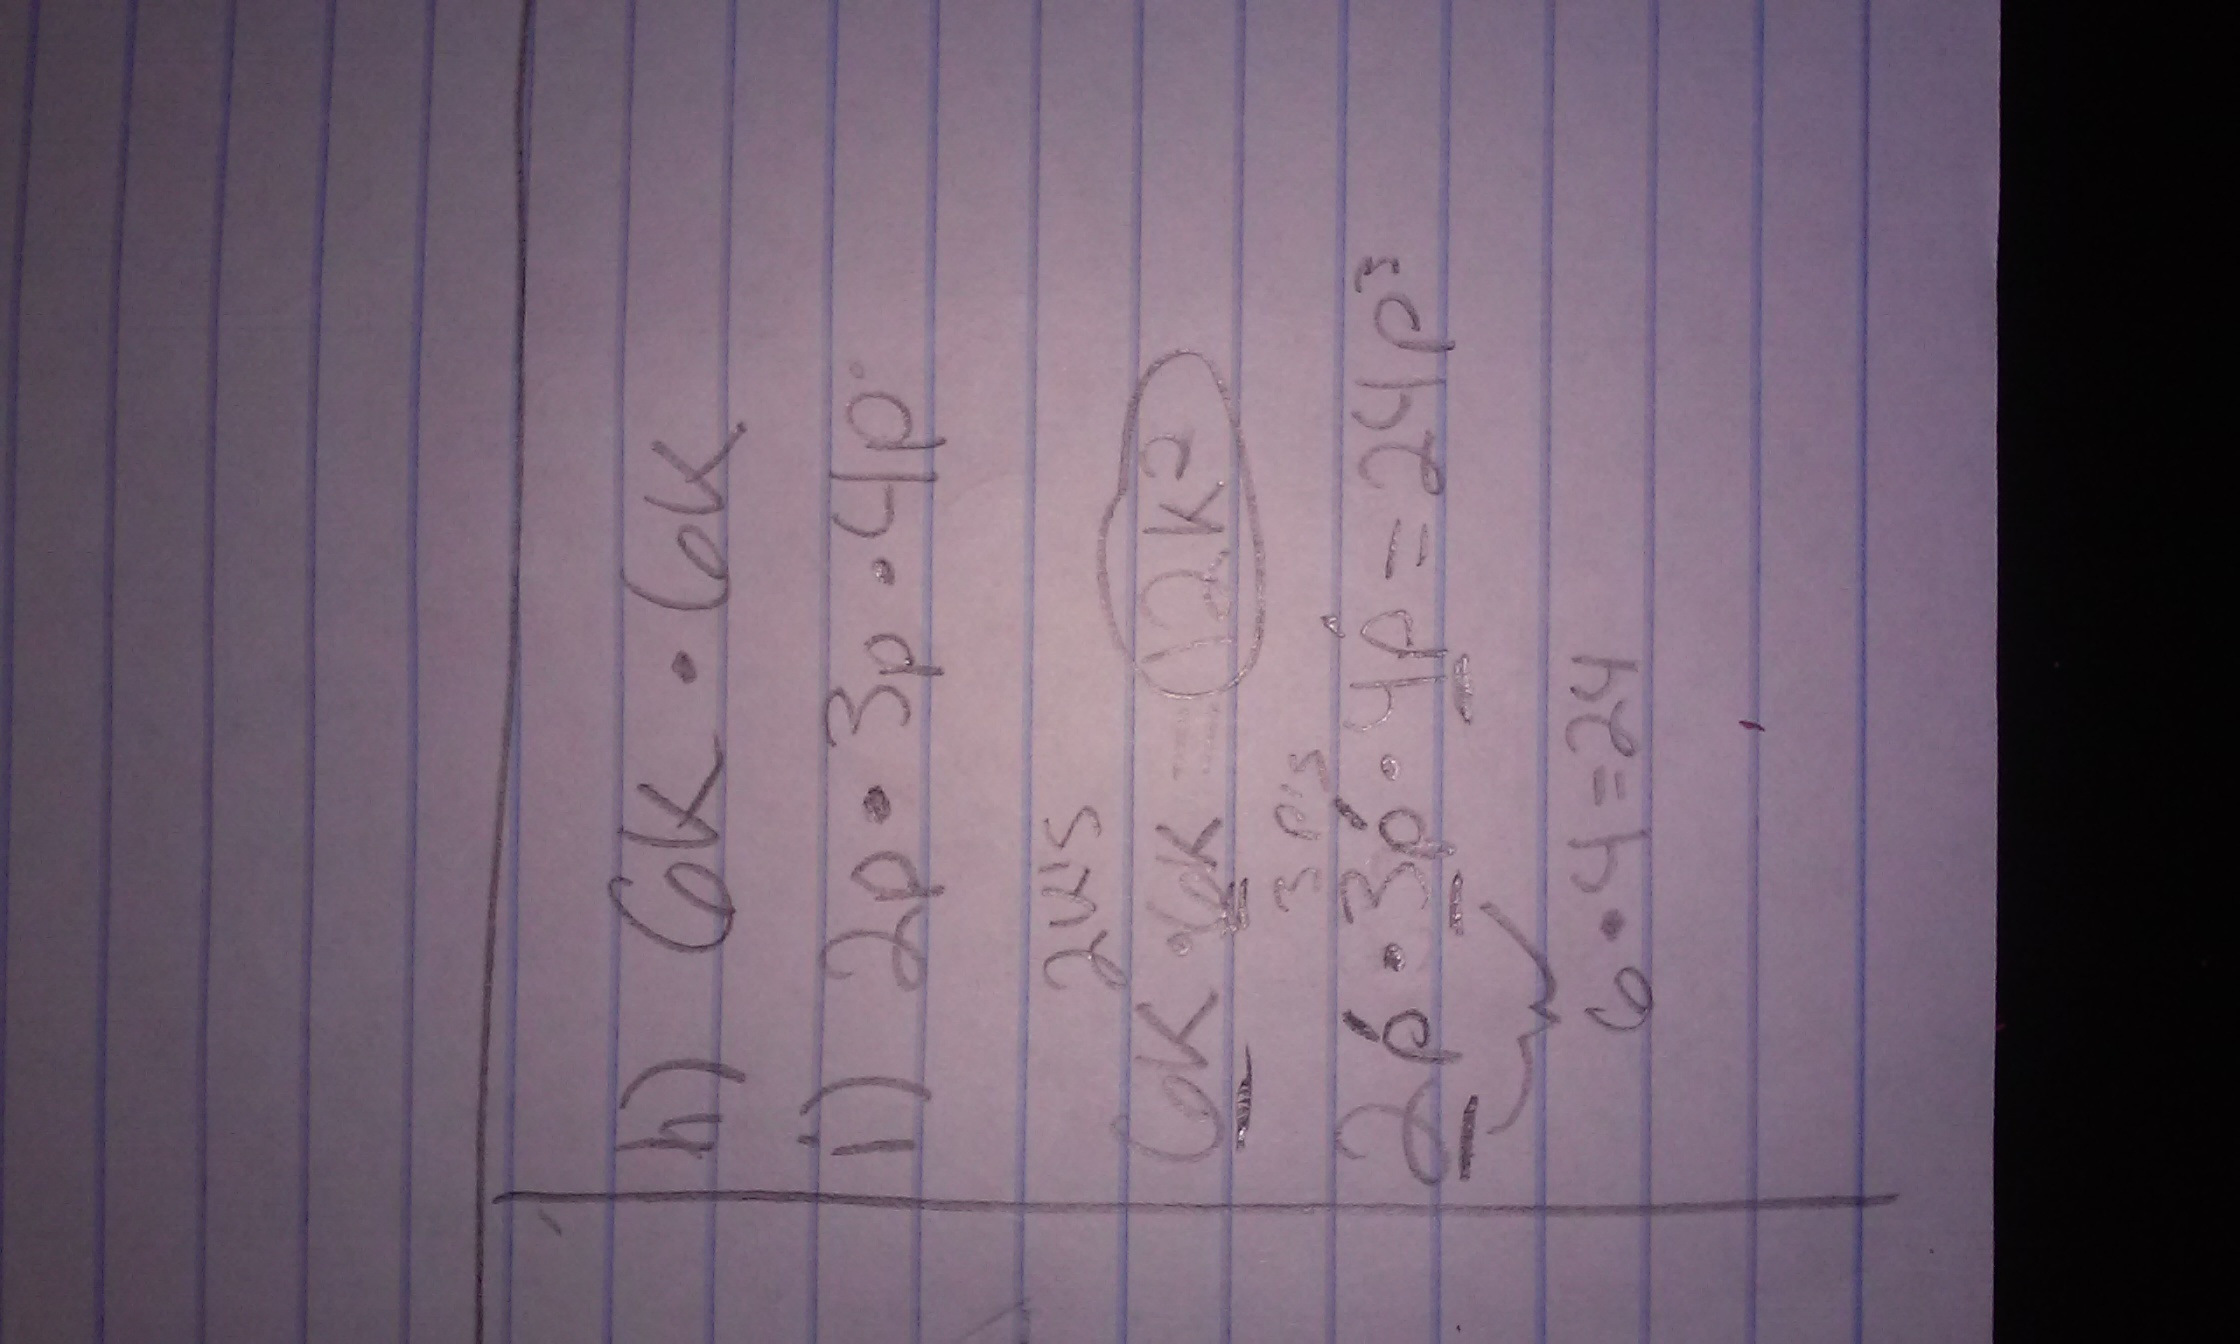 h) 6k · 6k
i) 2p · 3p · 4p
2 k's
6k · 6k = 12k²
3 p's
2p · 3p · 4p = 24p³
6 · 4 = 24